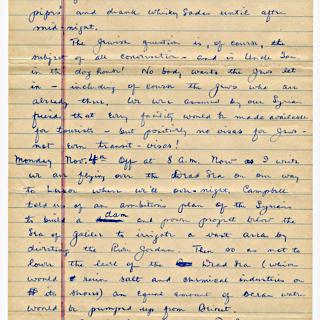 pipes" and drank whisky Sodas until after
mid-night.
The Jewish question is, of course, the
subject of all conversation - and is Uncle Sam
in the dog house! No body wants the Jews let
in - including of course the Jews who are
already there. We were assured by our Syrian
friend that every facility would be made available
for tourists - but positively no visas for Jews -
not even transit - visas!
Monday Nov. 4th Off at 8 a.m. Now as I write
we are flying over the Dead Sea on our way
to Luxor where we'll over-night. Campbell
told us of an ambitious plan of the Syrians
to build a dam and power project below the
Sea of Galilee to irrigate a vast area by
diverting the River Jordan. Then so as not to
lower the level of the Dead Sea (which
would ruin salt and chemical industries on
its shores) an equal amount of ocean water
would be pumped up from Beirut.